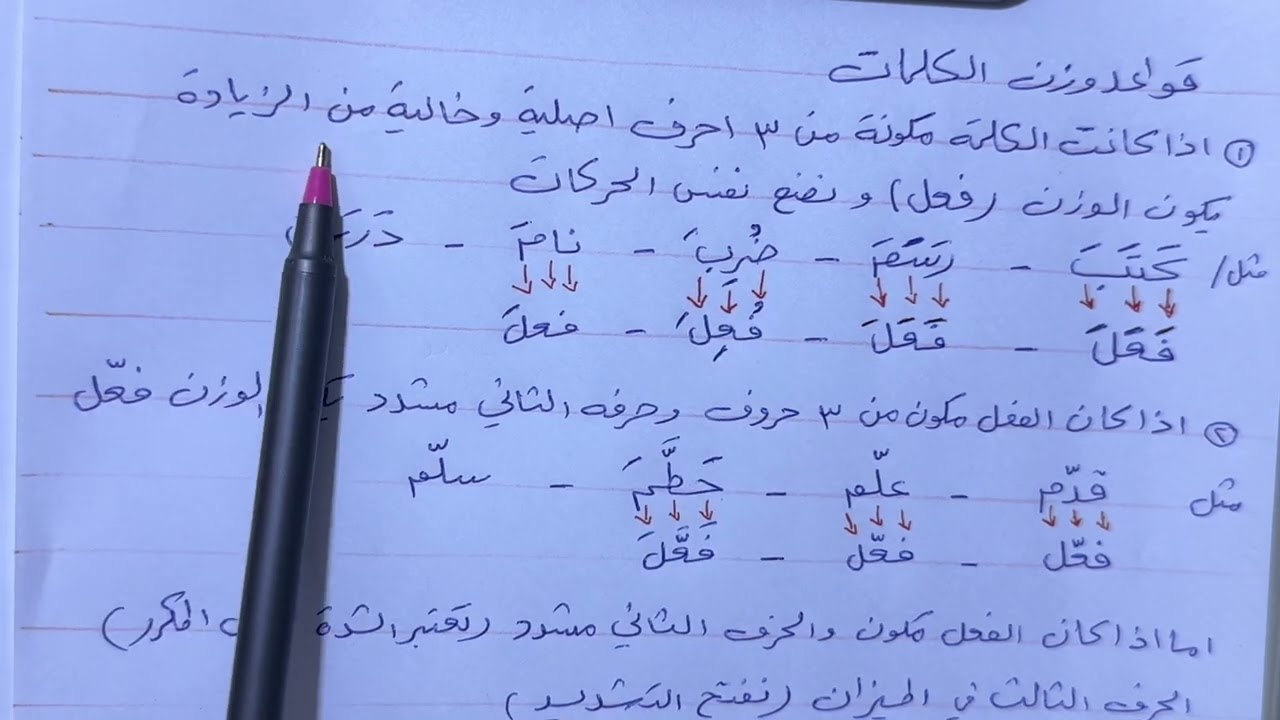 قواعد وزن الكلمات
① اذا كانت الكلمة مكونة من ٣ احرف اصلية وخالية من الزيادة
يكون الوزن (فعل) و نضع نفس الحركات
مثل/ كَتَبَ - رَسَمَ - ضُرِبَ - نامَ -
فَعَلَ - فَعَلَ - فُعِلَ - فعلَ
② اذا كان الفعل مكون من ٣ حروف وحرفه الثاني مشدد الوزن فعّل
مثل قدّم - علّم - حَطَّمَ - سلّم
فعّل - فعّل - فَعَّلَ
اما اذا كان الفعل مكون والحرف الثاني مشدد (تعتبر الشدة المكرر)
الحرف الثالث في الميزان (نفتح التشديد)